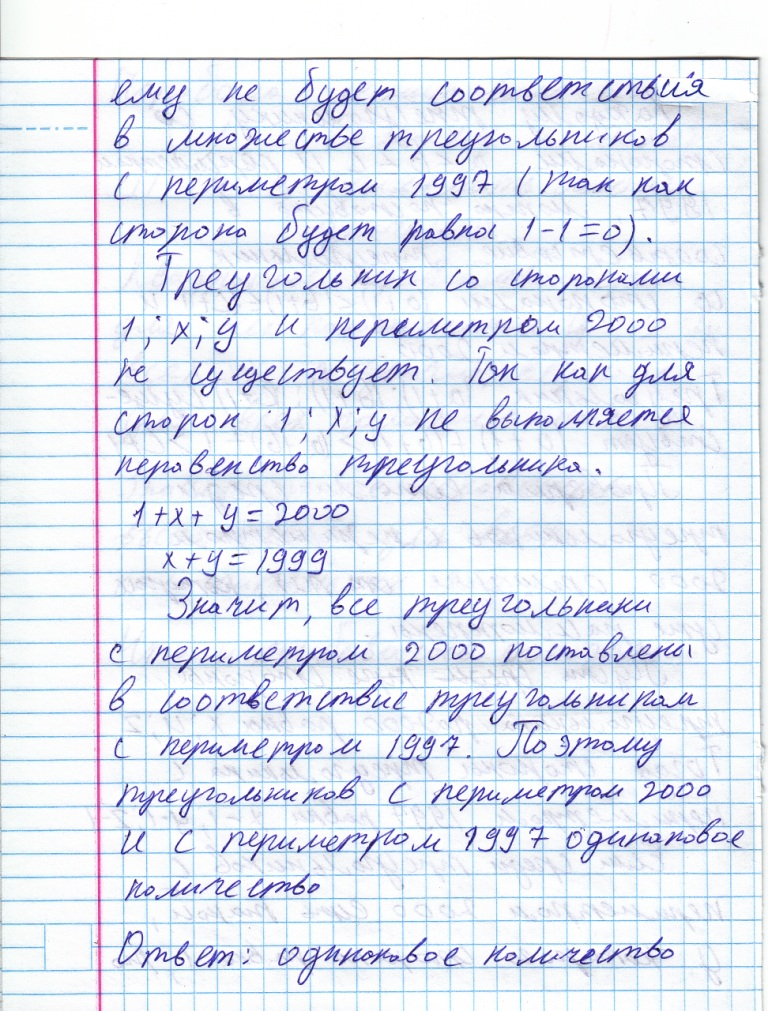 ему не будет соответствия
в множестве треугольников
с периметром 1997 (так как
сторона будет равна 1-1=0).
Треугольник со сторонами
1; x; y и периметром 2000
не существует. Так как для
сторон 1; x; y не выполняется
неравенство треугольника.
1+x+y=2000
x+y=1999
Значит, все треугольники
с периметром 2000 поставлены
в соответствие треугольникам
с периметром 1997. Поэтому
треугольников с периметром 2000
и с периметром 1997 одинаковое
количество
Ответ: одинаковое количество